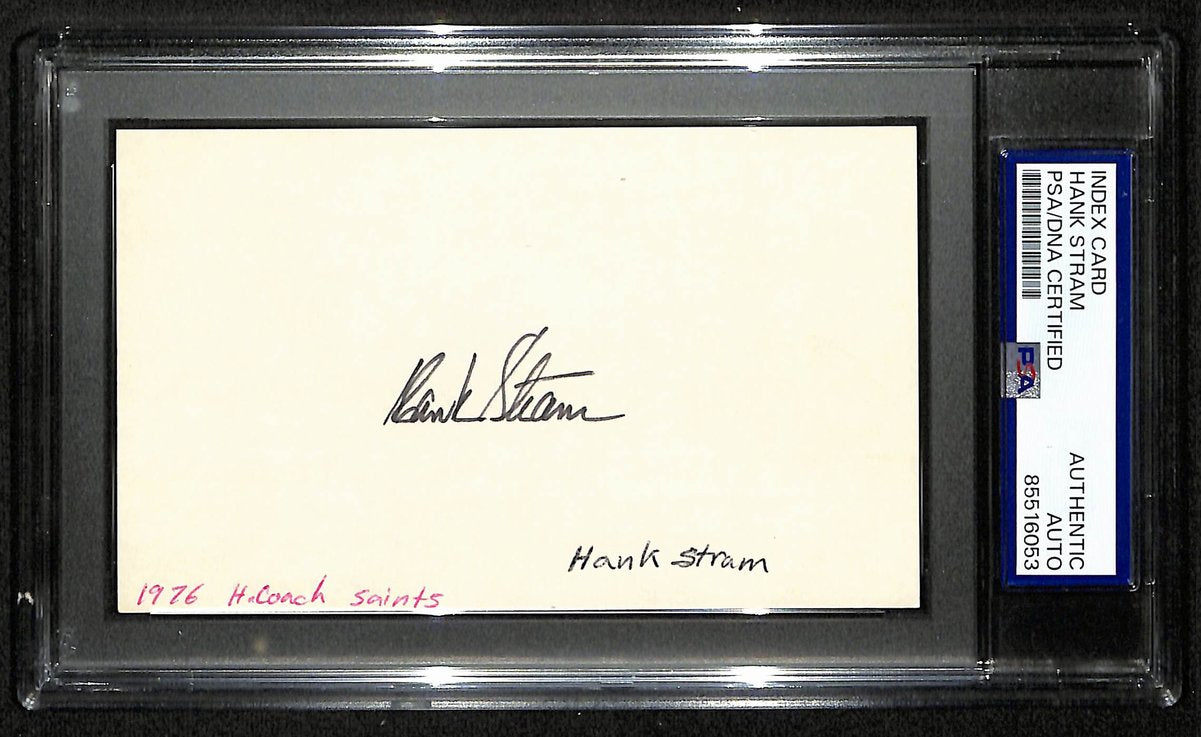 Hank Stram
Hank Stram
1976 H.Coach Saints
INDEX CARD
HANK STRAM
PSA/DNA CERTIFIED
PSA
AUTHENTIC
AUTO
85516053